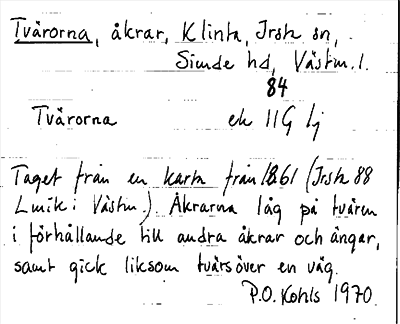 Tvärorna, åkrar, Klinta, Irsta sn,
Siende hd, Västm. l.
84
Tvärorna ek 11G lj
Taget från en karta från 1861 (Irsta 88
Lmtk i Västm.) Åkrarna låg på tvären
i förhållande till andra åkrar och ängar,
samt gick liksom tvärs över en väg.
P.O. Kohls 1970.